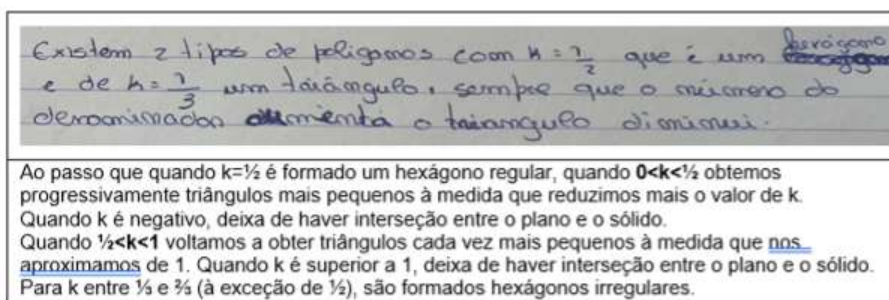 Existem 2 tipos de poligonos com k = 1/2 que é um hexágono
e de k = 1/3 um triângulo, sempre que o número do
denominador aumenta o triangulo diminui.
Ao passo que quando k=½ é formado um hexágono regular, quando 0<k<½ obtemos
progressivamente triângulos mais pequenos à medida que reduzimos mais o valor de k.
Quando k é negativo, deixa de haver interseção entre o plano e o sólido.
Quando ½<k<1 voltamos a obter triângulos cada vez mais pequenos à medida que nos
aproximamos de 1. Quando k é superior a 1, deixa de haver interseção entre o plano e o sólido.
Para k entre ⅓ e ⅔ (à exceção de ½), são formados hexágonos irregulares.